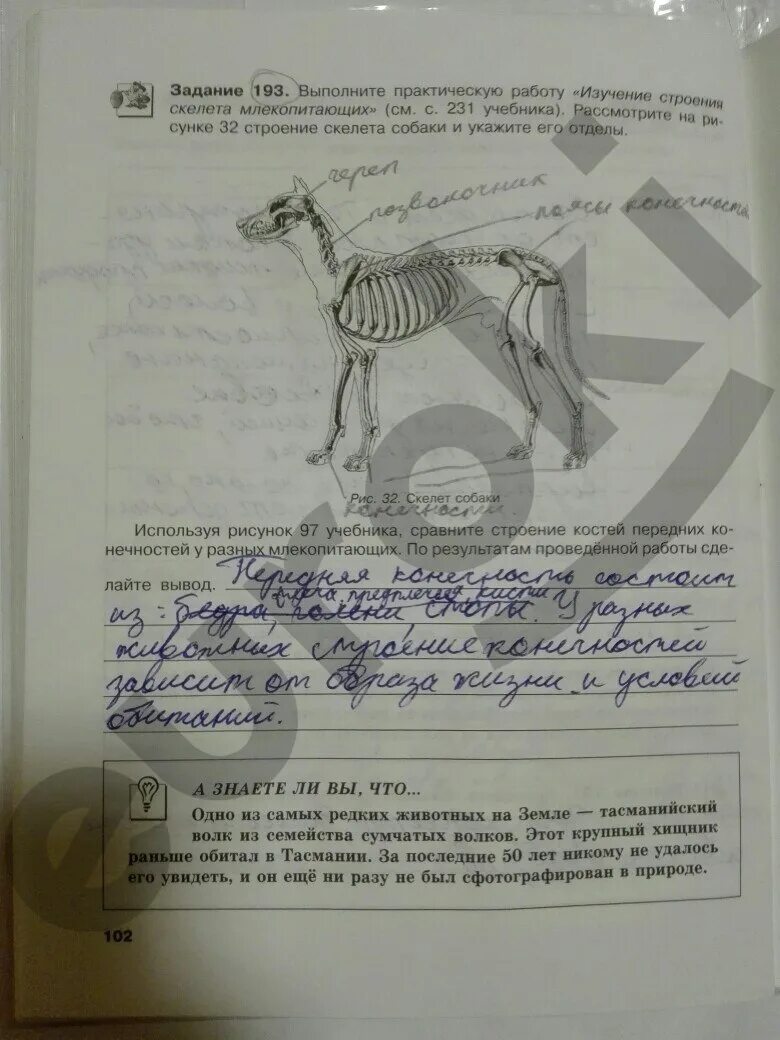 Задание 193. Выполните практическую работу «Изучение строения
скелета млекопитающих» (см. с. 231 учебника). Рассмотрите на ри-
сунке 32 строение скелета собаки и укажите его отделы.
череп
позвоночник
поясы конечностей
Рис. 32. Скелет собаки
конечности.
Используя рисунок 97 учебника, сравните строение костей передних ко-
нечностей у разных млекопитающих. По результатам проведённой работы сде-
лайте вывод. Передняя конечность состоит
плеча, предплечия, кисти
из: бедра, голени, стопы. У разных
животных строение конечностей
зависит от образа жизни и условий
обитаний.
А ЗНАЕТЕ ЛИ ВЫ, ЧТО...
Одно из самых редких животных на Земле — тасманийский
волк из семейства сумчатых волков. Этот крупный хищник
раньше обитал в Тасмании. За последние 50 лет никому не удалось
его увидеть, и он ещё ни разу не был сфотографирован в природе.
102
euroki